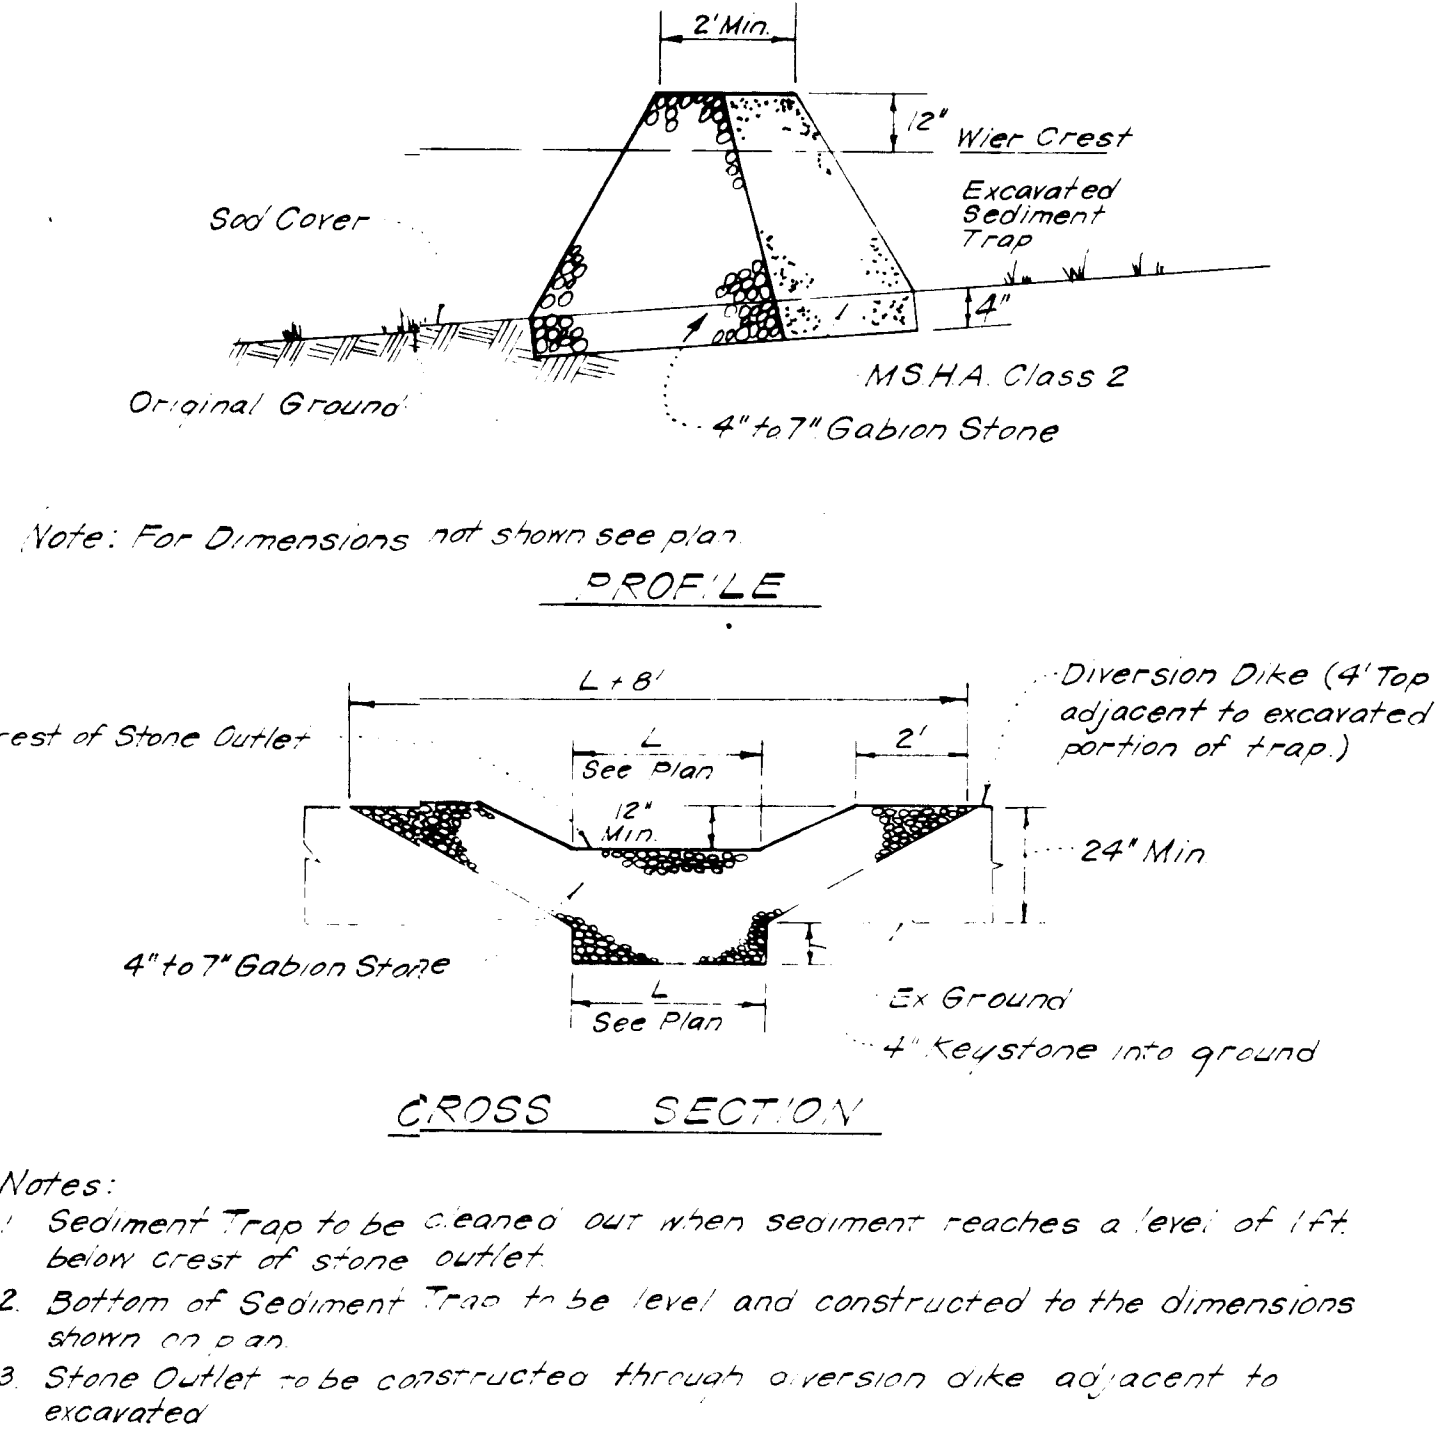 2' Min.
12"
Wier Crest
Excavated
Sediment
Trap
Sod Cover
4"
M.S.H.A. Class 2
Original Ground
4" to 7" Gabion Stone
Note: For Dimensions not shown see plan.
PROFILE
L + 8'
Diversion Dike (4' Top
adjacent to excavated
portion of trap.)
rest of Stone Outlet
L
See Plan
2'
12"
Min.
24" Min.
4" to 7" Gabion Stone
L
See Plan
Ex Ground
4" Keystone into ground
CROSS SECTION
Notes:
1 Sediment Trap to be cleaned out when sediment reaches a level of 1 ft.
below crest of stone outlet.
2. Bottom of Sediment Trap to be level and constructed to the dimensions
shown on plan.
3. Stone Outlet to be constructed through diversion dike adjacent to
excavated